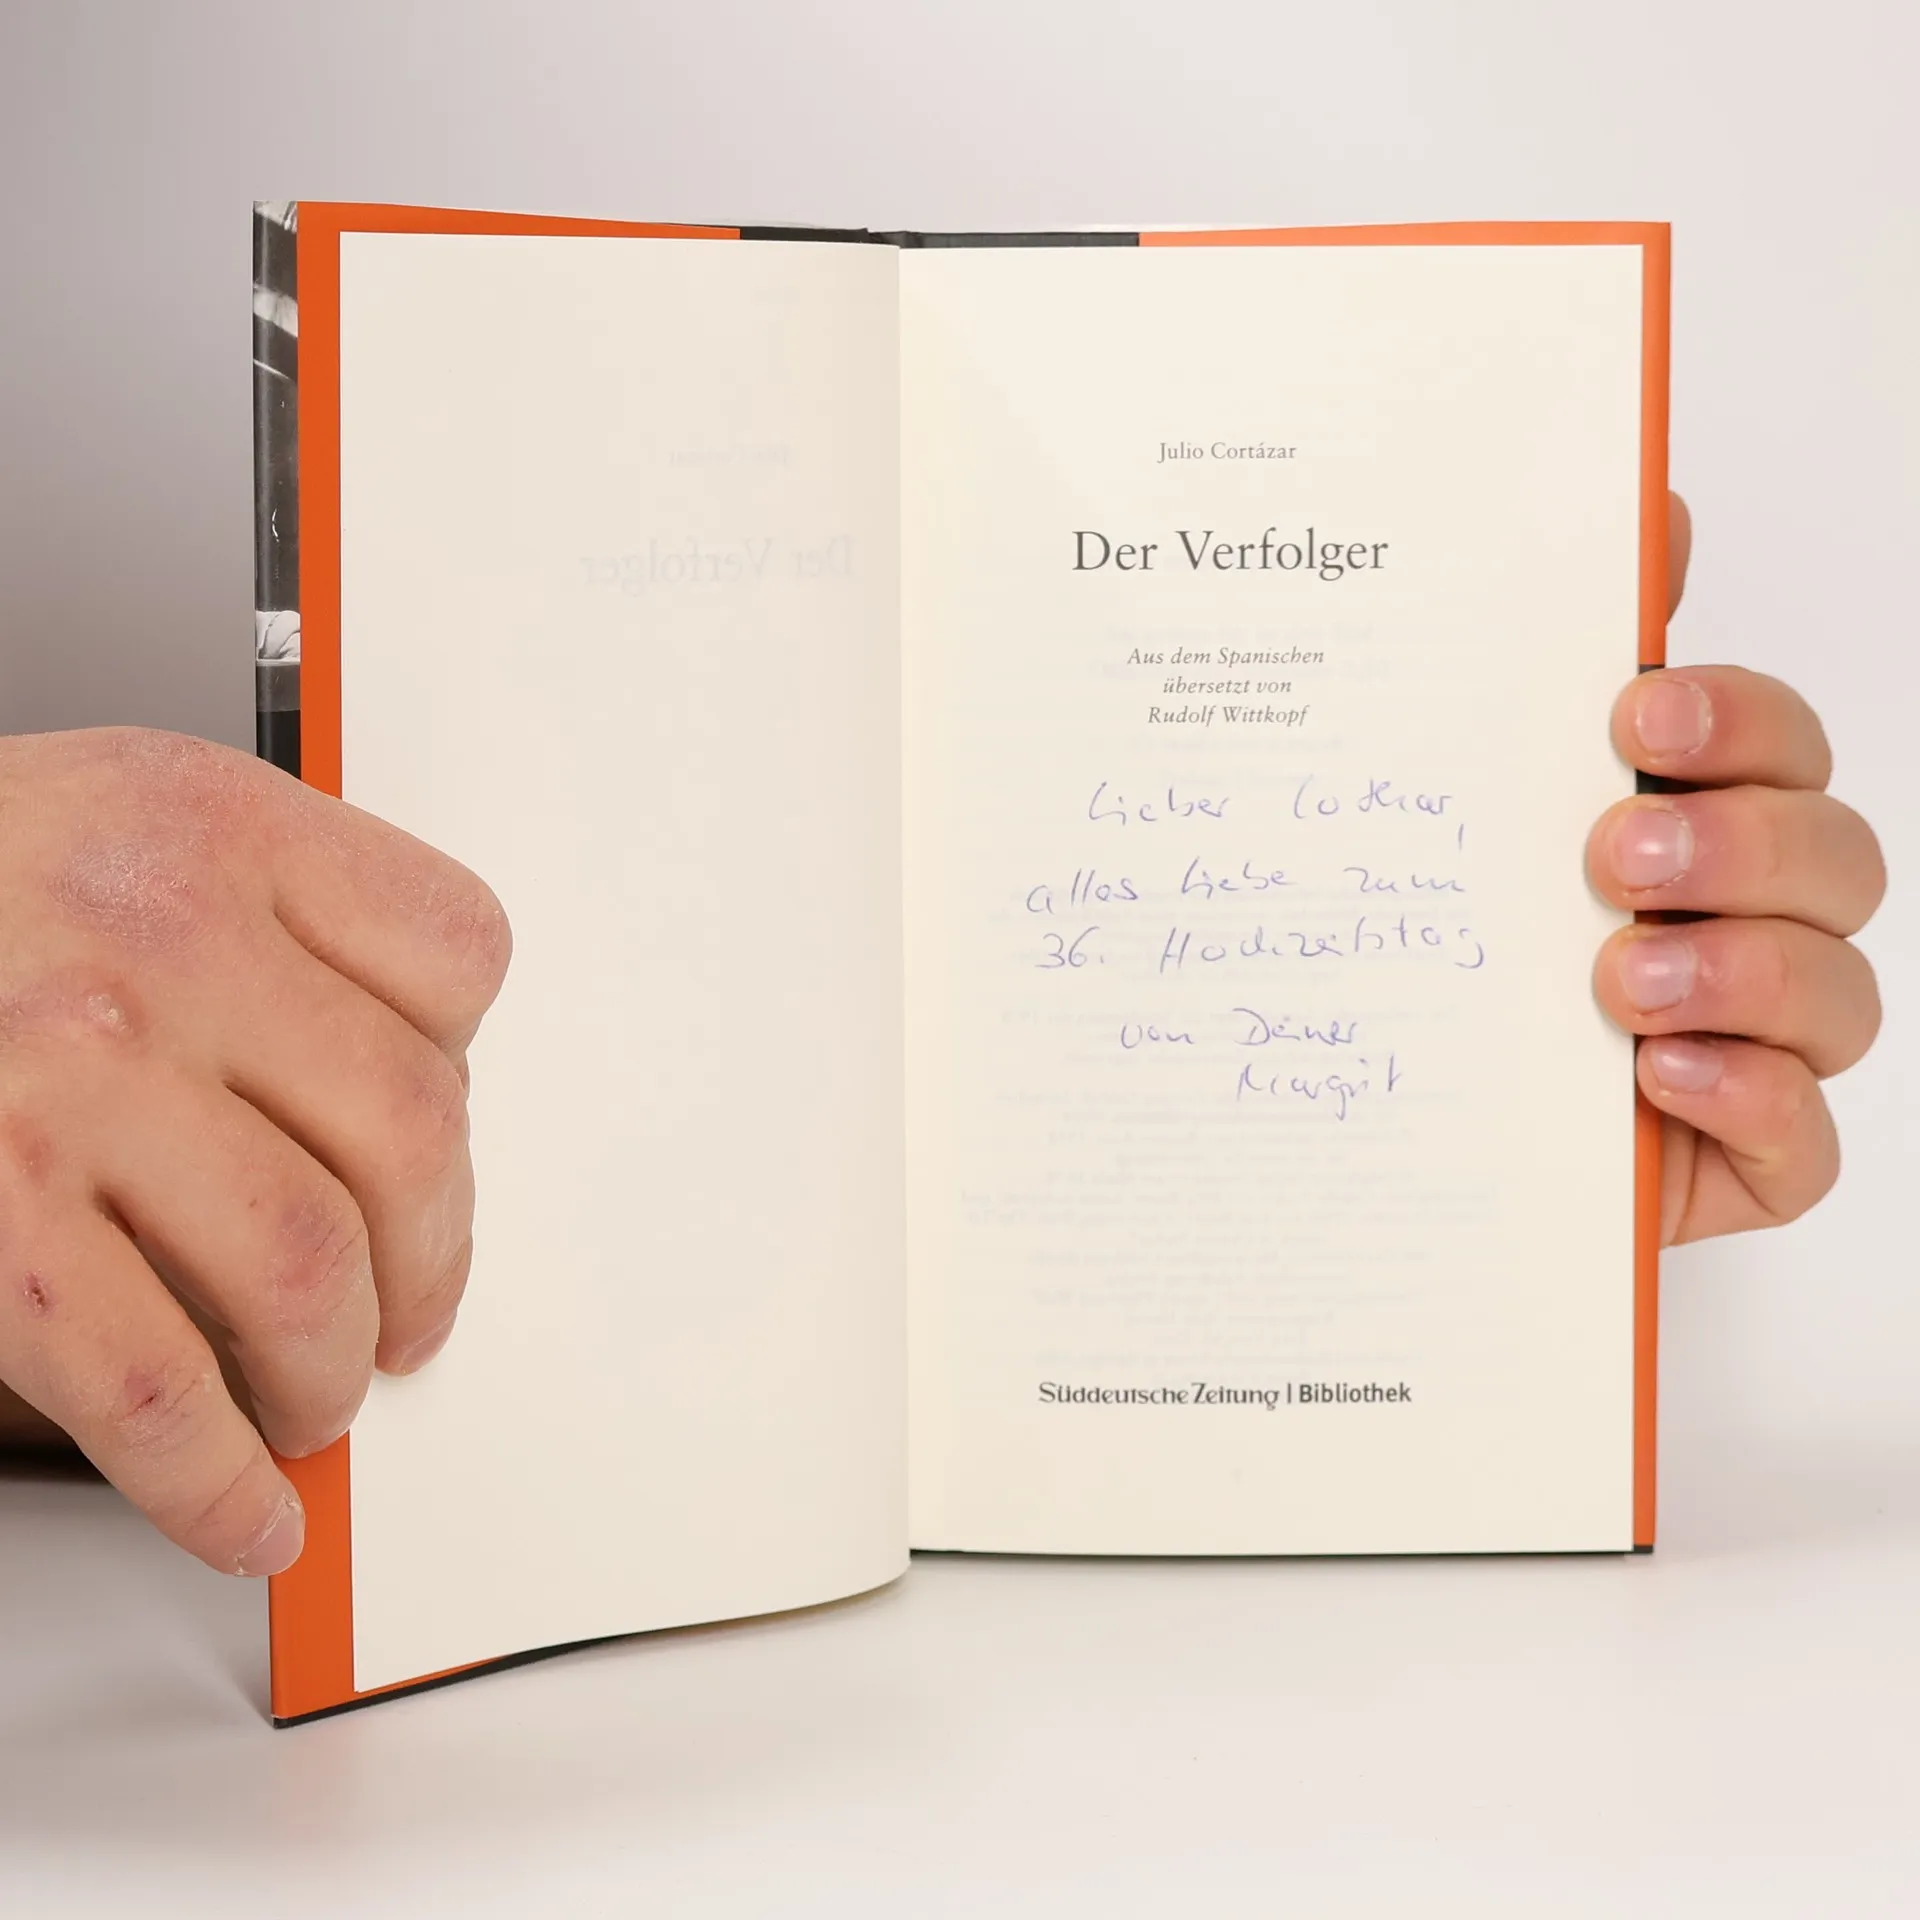 Julio Cortázar
Der Verfolger
Aus dem Spanischen
übersetzt von
Rudolf Wittkopf
Lieber Lothar,
alles Liebe zum
36. Hochzeitstag
von Deiner
Margrit
Süddeutsche Zeitung | Bibliothek